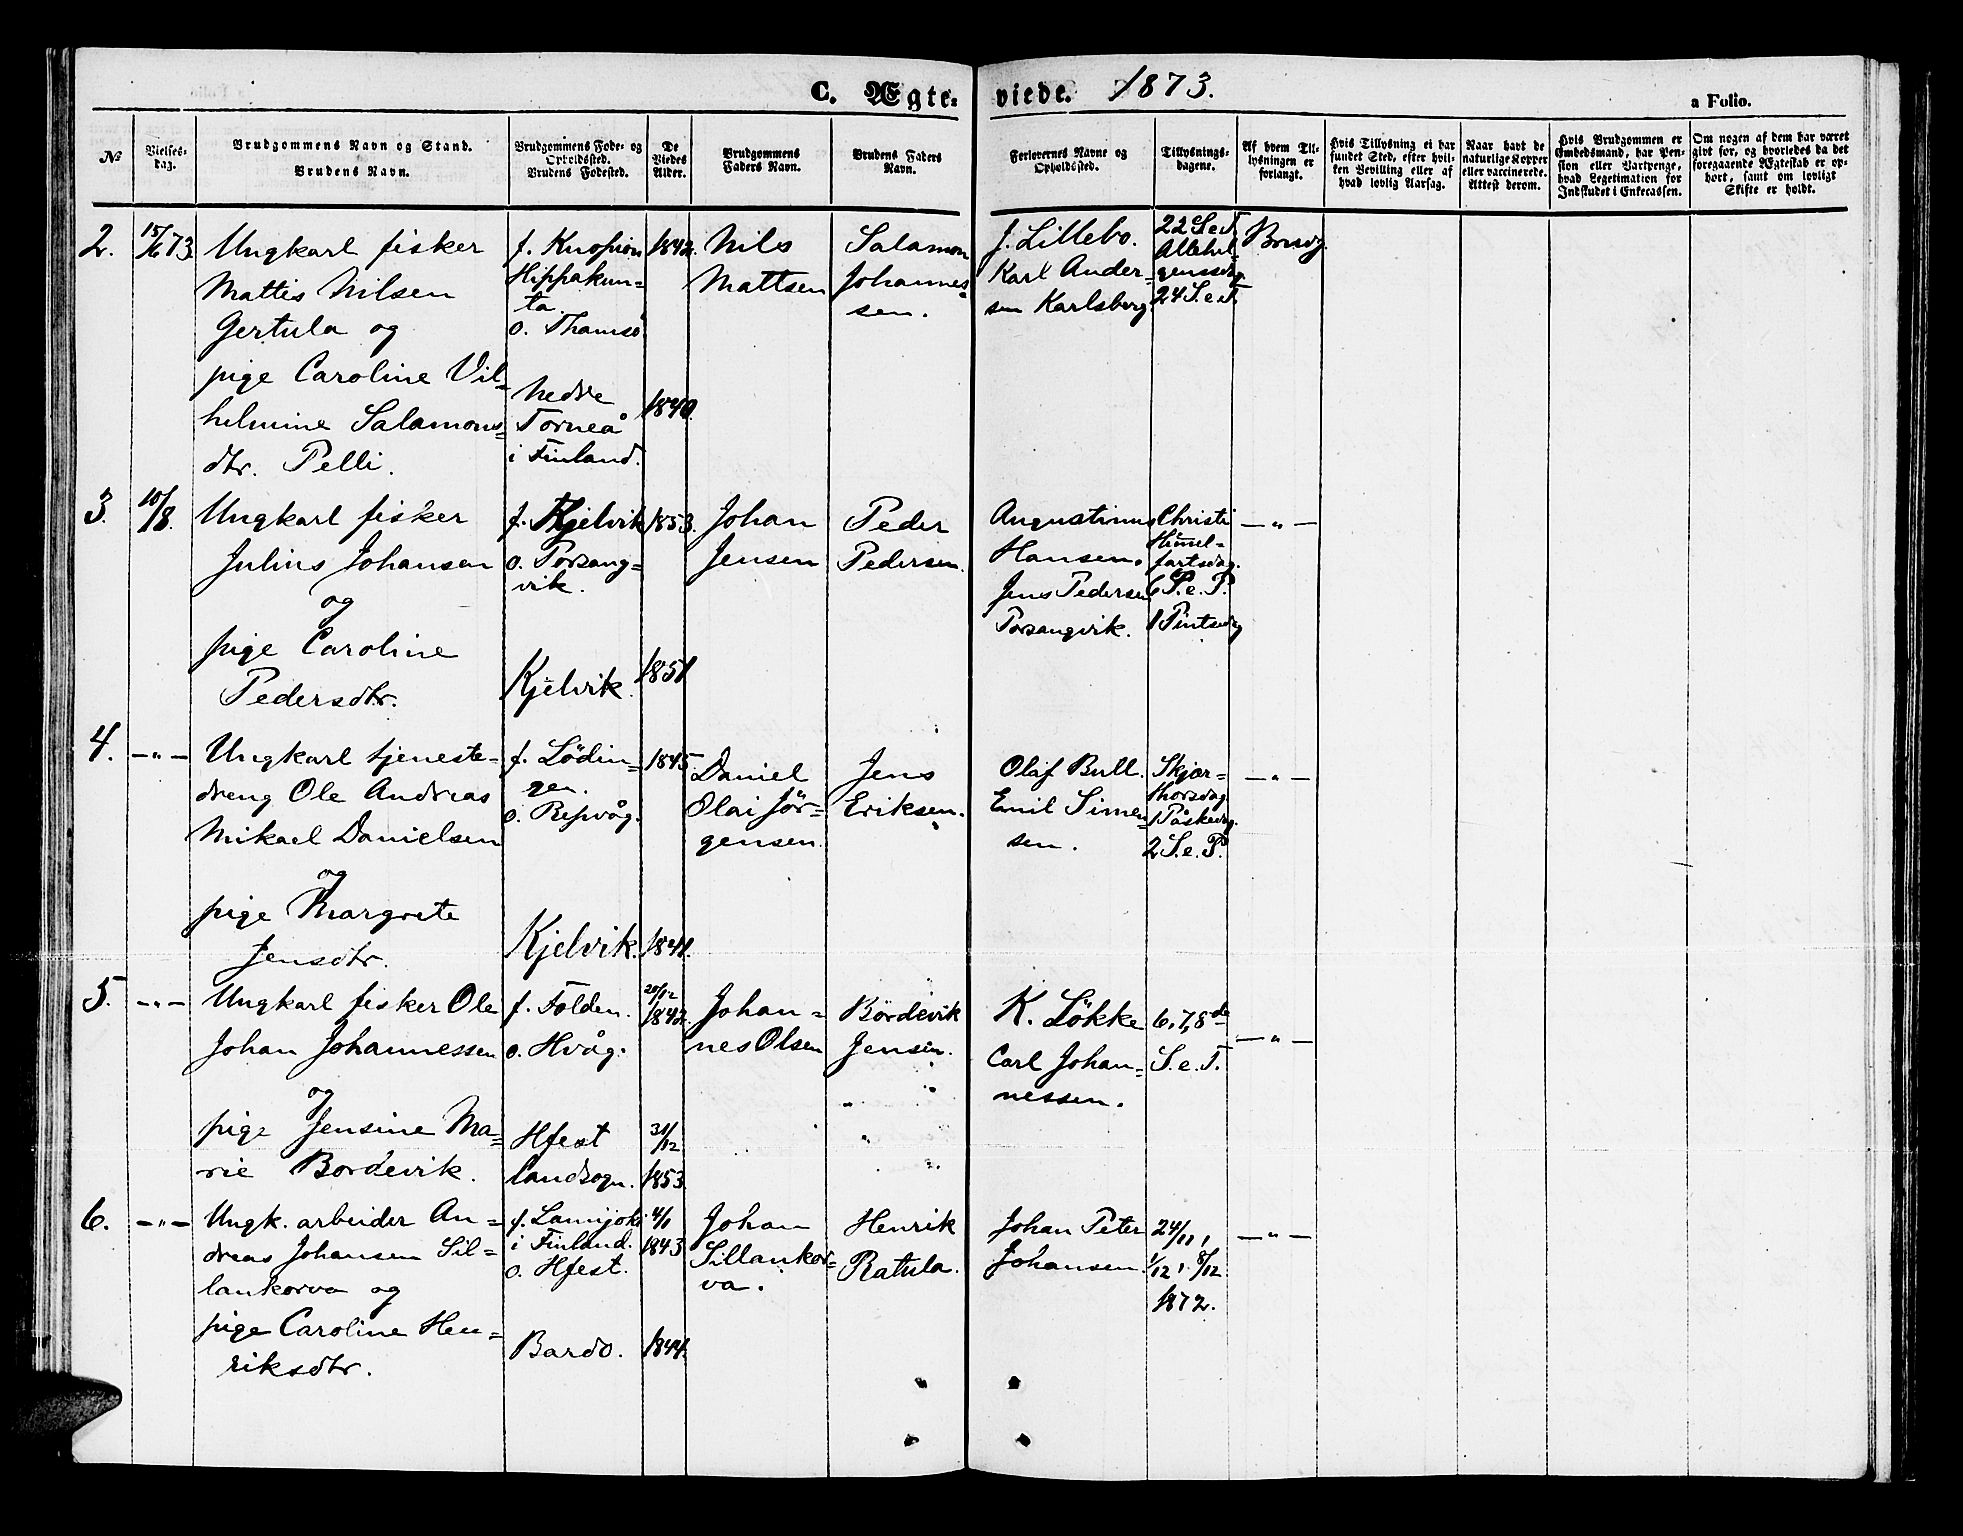 C. Ægteviede. 1873.
a Folio.
№
Vielses-
dag.
Brudgommens Navn og Stand.
Brudens Navn.
Brudgommens Føde- og
Opholdssted.
Brudens Fødested.
De
Viedes
Alder.
Brudgommens
Faders Navn.
Brudens Faders
Navn.
Forlovernes Navne og
Opholdssted.
Tillysnings-
dagene.
Af hvem Til-
lysningen er
forlangt.
Hvis Tillysning ei har
fundet Sted, efter hvil-
ken Bevilling eller af
hvad lovlig Aarsag.
Naar havt de
naturlige Kopper
eller vaccinerede.
Attest derom.
Hvis Brudgommen er
Embedsmand, har Pen-
sion eller Vartpenge,
hvad Legetimation for
Indskudet i Enkecassen.
Om nogen af dem har været
gift før, og hvorledes da det
foregaaende Ægteskab er op-
hørt, samt om lovligt
Skifte er holdt.
2.
15/6 73
Ungkarl fisker
Mattis Nilsen
Gertula og
pige Caroline Vil-
helmine Salamons-
dtr. Pelli.
f. Kuopion
Hippakun-
ta.
o. Thamsö
Nedre
Torneå
i Finland.
1842.
1840.
Nils
Mattsen
Salamon
Johannes-
sen.
J. Lillebo.
Karl Ander-
sen Karlsberg
22 S.e.T.
Allehel-
gensdag
24 S.e.T.
Brudg.
3.
10/8.
Ungkarl fisker
Julius Johansen
og
pige Caroline
Pedersdtr.
f. Kjelvik
o. Porsang-
vik.
Kjelvik.
1853.
1851
Johan
Jensen
Peder
Pedersen.
Augustinus
Hansen.
Jens Pedersen
Porsangvik.
Christi
Himel-
fartsdag.
6 S.e.P.
1 Pintsedg
— „ —
4.
— „ —
Ungkarl tjeneste-
dreng Ole Andreas
Mikael Danielsen
og
pige Margrete
Jensdtr.
f. Lödin-
gen.
o. Repvåg.
Kjelvik.
1845
1841.
Daniel
Olai Jör-
gensen.
Jens
Eriksen.
Olaf Bull.
Emil Simen-
sen.
Skjær-
thorsdag
1 Påskedg.
2 S.e.P.
— „ —
5.
— „ —
Ungkarl fisker Ole
Johan Johannessen
og
pige Jensine Ma-
rie Bordevik.
f. Folden.
o. Hvåg.
Hfest
landsogn.
20/12
1842.
31/12
1853
Johan-
nes Olsen
Bördevik
Jensen.
K. Lökke
Carl Johan-
nessen.
6, 7, 8de
S.e.T.
— „ —
6.
— „ —
Ungk. arbeider An-
dreas Johansen Sil-
lankorva og
pige Caroline Hen-
riksdtr.
f. Lamijoki
i Finland.
o. Hfest.
Bardo.
4/1
1843
1844.
Johan
Sillankor-
va.
Henrik
Ratula.
Johan Peter
Johansen.
24/11,
1/12, 8/12
1872.
— „ —